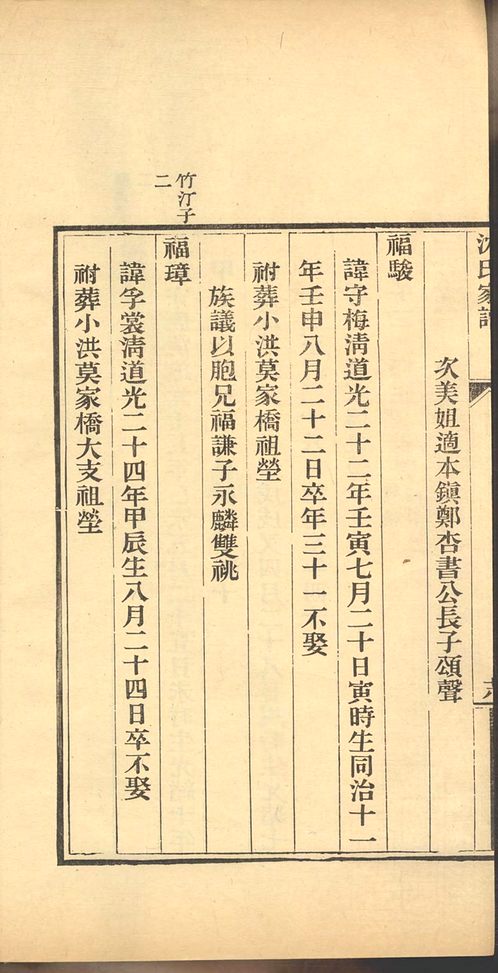 沈氏家譜
次美姐適本鎭鄭杏書公長子頌聲
福駿
諱守梅淸道光二十二年壬寅七月二十日寅時生同治十一
年壬申八月二十二日卒年三十一不娶
祔葬小洪莫家橋祖塋
族議以胞兄福謙子永麟雙祧
竹汀子
二
福璋
諱孚裳淸道光二十四年甲辰生八月二十四日卒不娶
祔葬小洪莫家橋大支祖塋